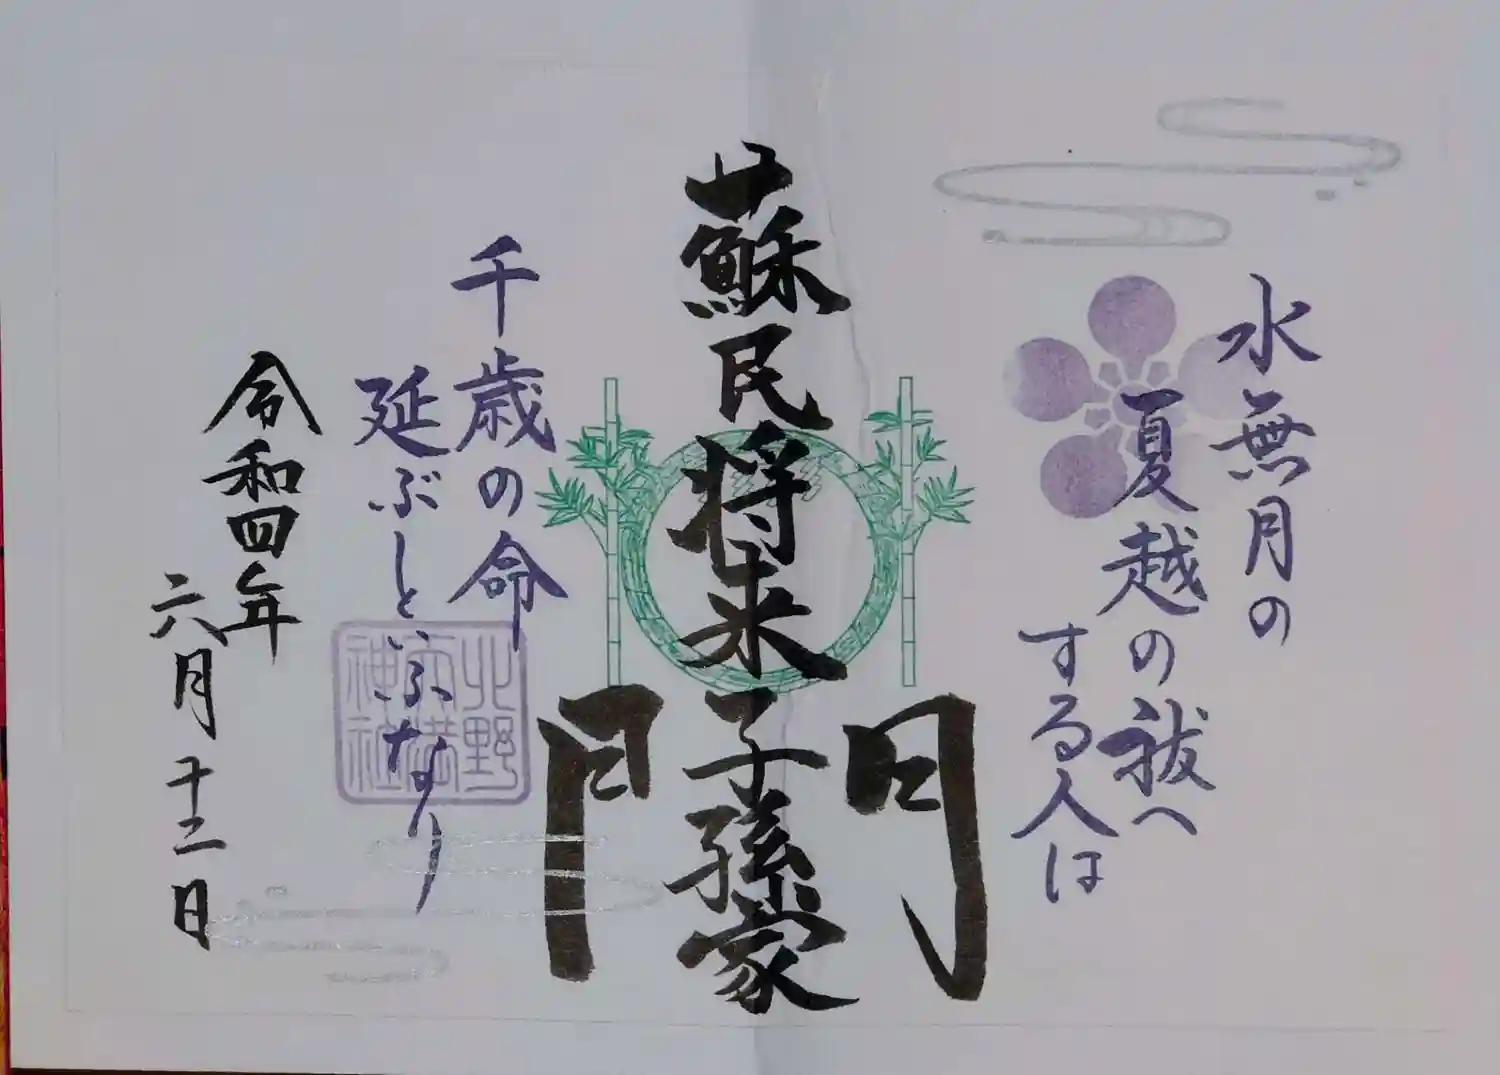 水無月の
夏越の祓へ
する人は
蘇民将来子孫家
門
千歳の命
延ぶといふなり
北野
天満
神社
令和四年
六月十二日